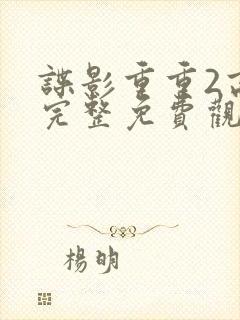 諜影重重2高
完整免費觀
楊明